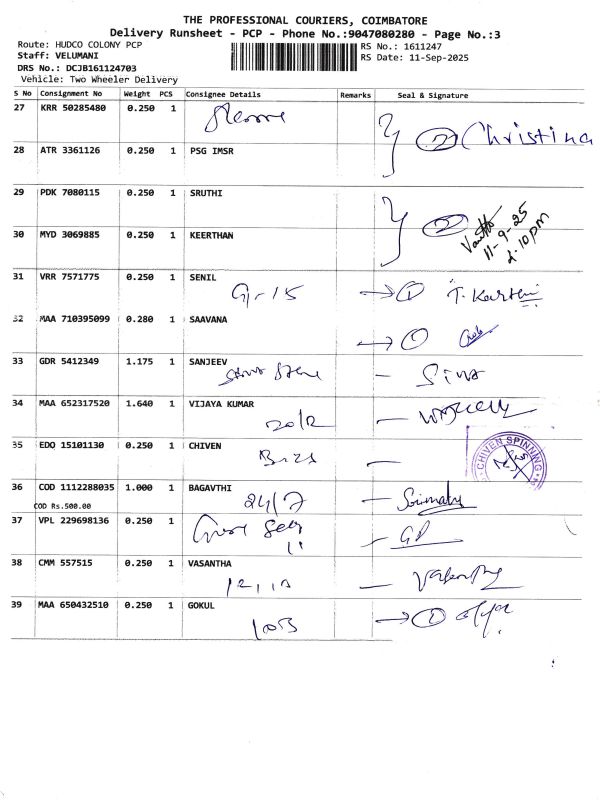 THE PROFESSIONAL COURIERS, COIMBATORE
Delivery Runsheet - PCP - Phone No.:9047080280 - Page No.:3
Route: HUDCO COLONY PCP RS No.: 1611247
Staff: VELUMANI RS Date: 11-Sep-2025
DRS No.: DCJB161124703
Vehicle: Two Wheeler Delivery
S No Consignment No Weight PCS Consignee Details Remarks Seal & Signature
27 KRR 50285480 0.250 1
② Christina
28 ATR 3361126 0.250 1 PSG IMSR
29 PDK 7080115 0.250 1 SRUTHI
②
11-9-25
2.10pm
30 MYD 3069885 0.250 1 KEERTHAN
31 VRR 7571775 0.250 1 SENIL
G-15 → ①
32 MAA 710395099 0.280 1 SAAVANA
33 GDR 5412349 1.175 1 SANJEEV
– Siva
34 MAA 652317520 1.640 1 VIJAYA KUMAR
20/2 –
35 EDQ 15101130 0.250 1 CHIVEN
CHIVEN SPINNING
36 COD 1112288035 1.000 1 BAGAVTHI
COD Rs.500.00
24/7 – Srimathy
37 VPL 229698136 0.250 1
38 CMM 557515 0.250 1 VASANTHA
39 MAA 650432510 0.250 1 GOKUL
→ ①